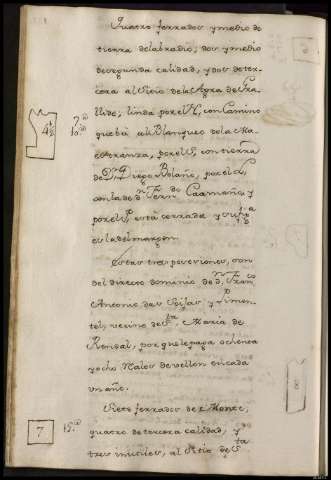 Quatro ferrados y medio de
tierra de labradio; dos y medio
de segunda calidad, y dos de ter-
cera al Sitio de la Agra de
linda por el N., con Camino
que vá
por el S, con tierra
de Dn Diego Bolaño, por el L,
con la de Dn Fern.do Caamaño, y
por el P, está cerrada y su
es la del margen.
Estas tres posesiones, son
del directo dominio de Dn Fran.co
Antonio das Seijas y Pimen-
tel, vecino de Sta Maria de
Rendal, por que le paga ochenta
y ocho Reales de vellon en cada
un año.
Siete ferrados de Monte,
quatro de tercera calidad, y
tres inutiles, al Sitio de Sta
4 1/2
7
8